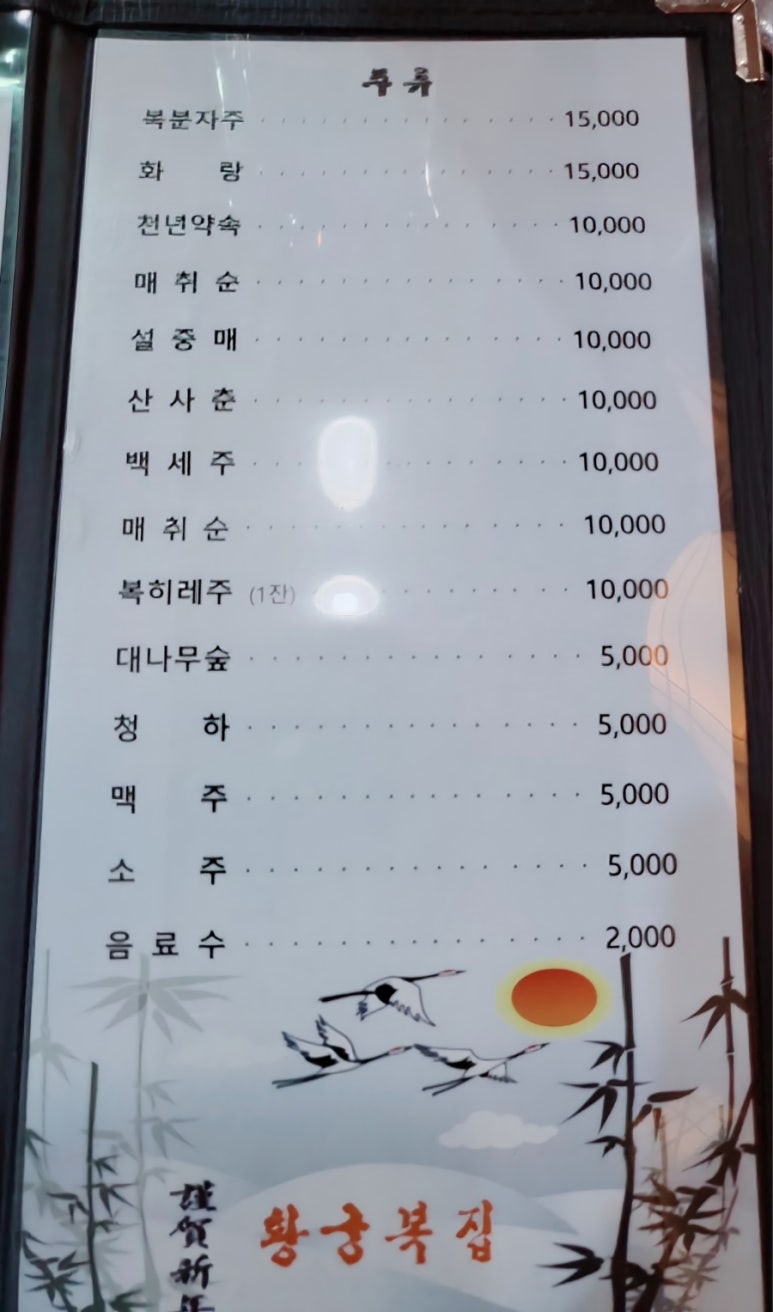 주류
복분자주 15,000
화 랑 15,000
천년약속 10,000
매 취 순 10,000
설 중 매 10,000
산 사 춘 10,000
백 세 주 10,000
매 취 순 10,000
복히레주 (1잔) 10,000
대나무숲 5,000
청 하 5,000
맥 주 5,000
소 주 5,000
음 료 수 2,000
謹賀新年
황궁복집